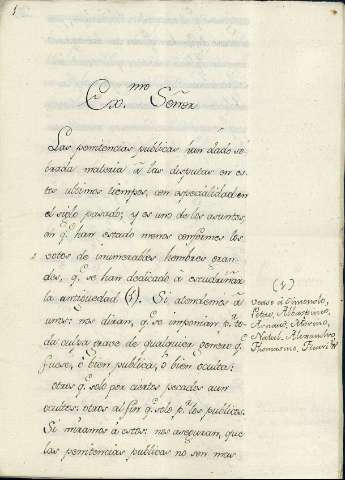 1
Ex.mo Señor
Las penitencias publicas han dado so
brada materia â las disputas en es
tos ultimos tiempos, con especialidad en
el siglo pasado; y es uno de los asuntos,
en q.e han estado menos conformes los
votos de inumerables hombres gran
des, q.e se han dedicado â escudriñar
la antiguedad (1). Si atendemos â
unos: nos diran, q.e se imponian p.r to
da culpa grave de qualquier genero q.e
fuese, ô bien publica, ô bien oculta;
otros q.e solo por ciertos pecados aun
ocultos: otros al fin q.e solo p.r los publicos.
Si miramos â estos: nos aseguran, que
las penitencias publicas no son mas
(1)
Vease â Sirmondo,
Petav, Albaspineo,
Arnaud, Morino,
Natal Alexandro,
Thomasino,